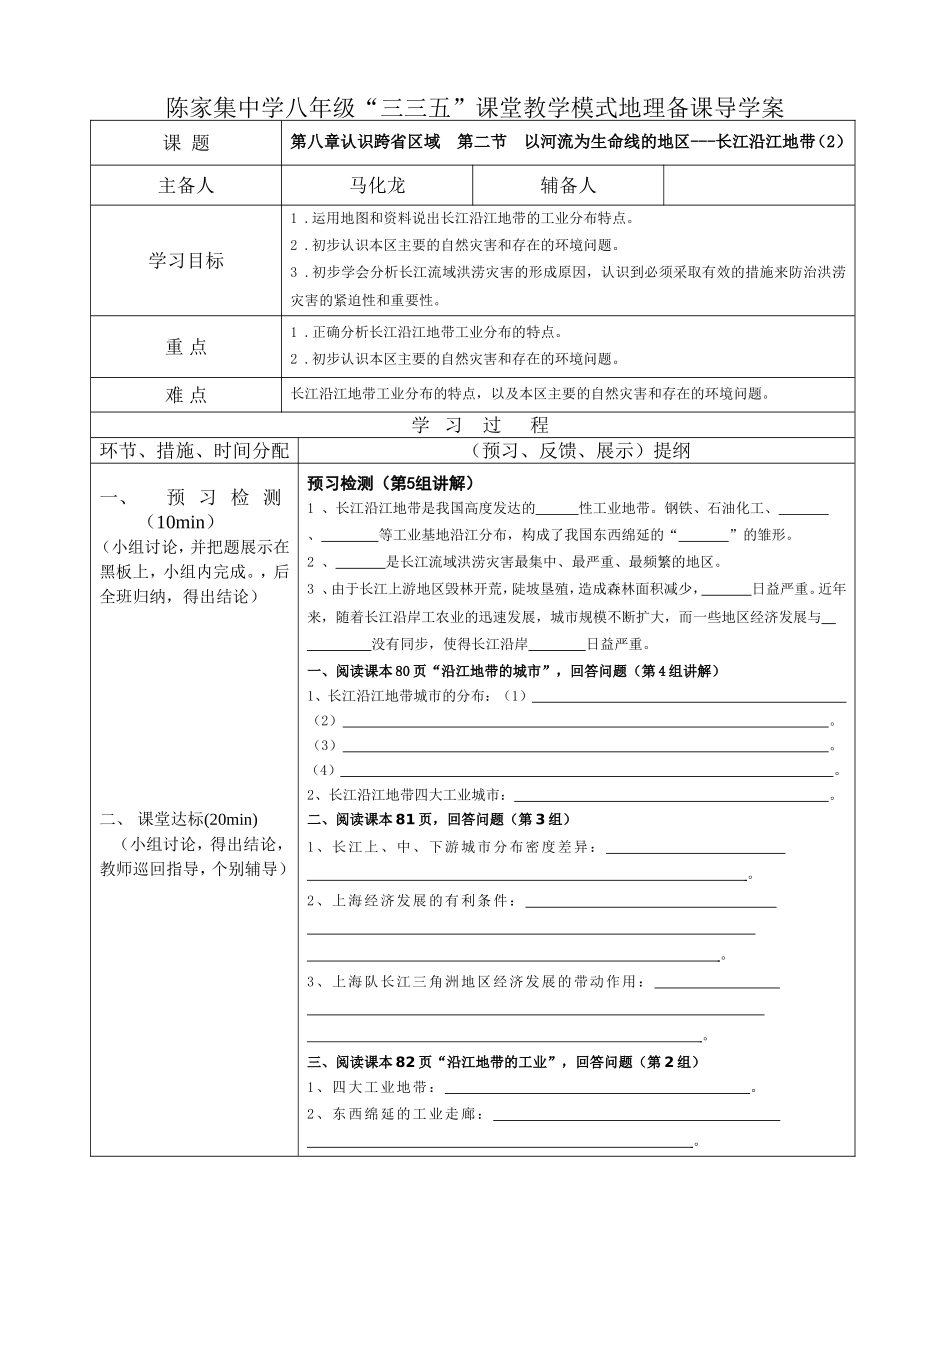 陈家集中学八年级“三三五”课堂教学模式地理备课导学案
课 题
第八章认识跨省区域 第二节 以河流为生命线的地区---长江沿江地带（2）
主备人
马化龙
辅备人
学习目标
1 .运用地图和资料说出长江沿江地带的工业分布特点。
2 .初步认识本区主要的自然灾害和存在的环境问题。
3 .初步学会分析长江流域洪涝灾害的形成原因，认识到必须采取有效的措施来防治洪涝
灾害的紧迫性和重要性。
重 点
1 .正确分析长江沿江地带工业分布的特点。
2 .初步认识本区主要的自然灾害和存在的环境问题。
难 点
长江沿江地带工业分布的特点，以及本区主要的自然灾害和存在的环境问题。
学 习 过 程
环节、措施、时间分配
（预习、反馈、展示）提纲
一、 预 习 检 测
（10min）
（小组讨论，并把题展示在
黑板上，小组内完成。，后
全班归纳，得出结论）
二、 课堂达标(20min)
（小组讨论，得出结论，
教师巡回指导，个别辅导）
预习检测（第5组讲解）
1 、长江沿江地带是我国高度发达的______性工业地带。钢铁、石油化工、_______
、________等工业基地沿江分布，构成了我国东西绵延的“_______”的雏形。
2 、_______是长江流域洪涝灾害最集中、最严重、最频繁的地区。
3 、由于长江上游地区毁林开荒，陡坡垦殖，造成森林面积减少，_______日益严重。近年
来，随着长江沿岸工农业的迅速发展，城市规模不断扩大，而一些地区经济发展与__
_________没有同步，使得长江沿岸________日益严重。
一、阅读课本 80 页“沿江地带的城市”，回答问题（第 4 组讲解）
1、长江沿江地带城市的分布：（1）____________________________________________
（2）____________________________________________________________________。
（3）____________________________________________________________________。
（4）_____________________________________________________________________。
2、长江沿江地带四大工业城市：____________________________________________。
二、阅读课本 81 页，回答问题（第 3 组）
1、长江上、中、下游城市分布密度差异：_________________________
______________________________________________________________。
2、上海经济发展的有利条件：___________________________________
_______________________________________________________________
__________________________________________________________。
3、上海队长江三角洲地区经济发展的带动作用：__________________
________________________________________________________________
_______________________________________________________。
三、阅读课本 82 页“沿江地带的工业”，回答问题（第 2 组）
1、四大工业地带：___________________________________________。
2、东西绵延的工业走廊：________________________________________
______________________________________________________。